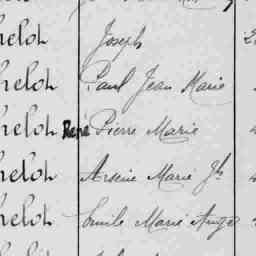 helot Joseph 2
helot Paul Jean Marie
helot René Pierre Marie
helot Arsène Marie Jh
helot Emile Marie Ange